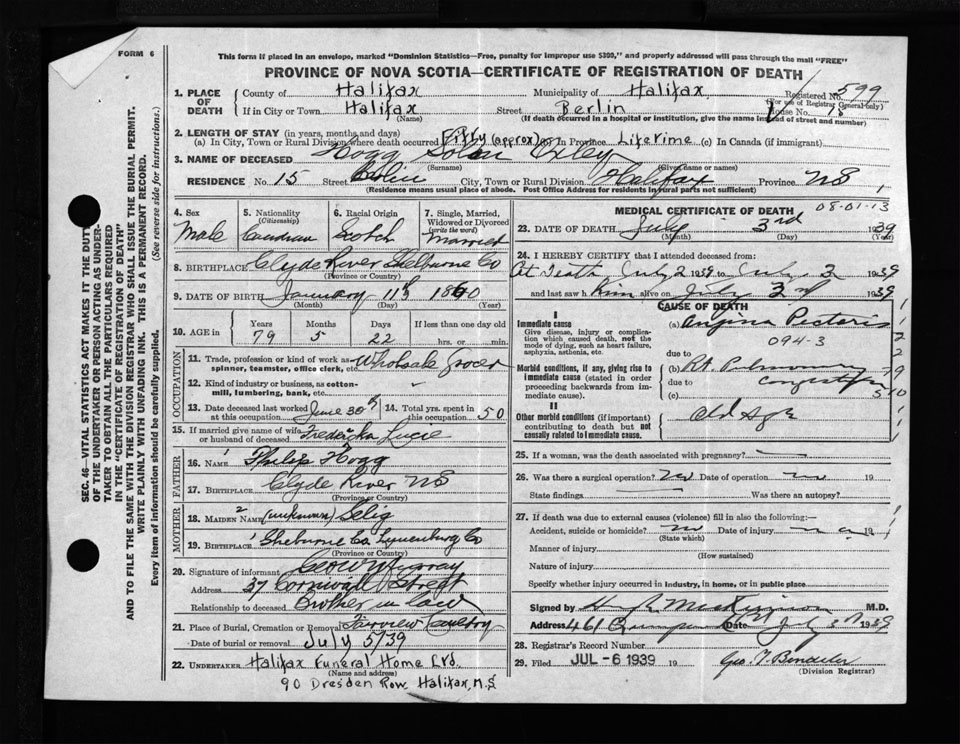 FORM 6
This form if placed in an envelope, marked "Dominion Statistics—Free, penalty for improper use $300," and properly addressed will pass through the mail "FREE"
PROVINCE OF NOVA SCOTIA—CERTIFICATE OF REGISTRATION OF DEATH
SEC. 46—VITAL STATISTICS ACT MAKES IT THE DUTY
OF THE UNDERTAKER OR PERSON ACTING AS UNDER-
TAKER TO OBTAIN ALL THE PARTICULARS REQUIRED
IN THE "CERTIFICATE OF REGISTRATION OF DEATH"
AND TO FILE THE SAME WITH THE DIVISION REGISTRAR WHO SHALL ISSUE THE BURIAL PERMIT.
WRITE PLAINLY WITH UNFADING INK. THIS IS A PERMANENT RECORD.
Every item of information should be carefully supplied. (See reverse side for instructions.)
1. PLACE OF DEATH
County of Halifax Municipality of Halifax Registered No. 599
(For use of Registrar General only)
If in City or Town Halifax Street Berlin House No. 15
(Name) (If death occurred in a hospital or institution, give the name instead of street and number)
2. LENGTH OF STAY (in years, months, and days)
(a) In City, Town or Rural Division where death occurred Fifty (approx) (b) In Province Lifetime (c) In Canada (if immigrant)
3. NAME OF DECEASED Hogg Oxley
(Surname) (Given name or names)
RESIDENCE No. 15 Street Berlin City, Town or Rural Division Halifax Province NS
(Residence means usual place of abode. Post Office Address for residents in rural parts not sufficient)
4. Sex Male
5. Nationality (Citizenship) Canadian
6. Racial Origin Scotch
7. Single, Married, Widowed or Divorced (write the word) Married
8. BIRTHPLACE Clyde River Shelburne Co
(Province or Country)
9. DATE OF BIRTH January 11th 1860
(Month) (Day) (Year)
10. AGE in Years 79 Months 5 Days 22 If less than one day old hrs. or min.
OCCUPATION
11. Trade, profession or kind of work as— spinner, teamster, office clerk, etc. Wholesale Grocer
12. Kind of industry or business, as cotton-mill, lumbering, bank, etc. -
13. Date deceased last worked at this occupation June 30th
14. Total yrs. spent in this occupation 50
15. If married give name of wife or husband of deceased Fredericka Lucie
FATHER
16. NAME Philip Hogg
17. BIRTHPLACE Clyde River NS
(Province or Country)
MOTHER
18. MAIDEN NAME (unknown) Selig
19. BIRTHPLACE Shelburne Co Lunenburg Co
(Province or Country)
20. Signature of informant Geo W Murray
Address 37 Cornwall Street
Relationship to deceased Brother in law
21. Place of Burial, Cremation or Removal Fairview Cemetery
Date of burial or removal July 5/39
22. UNDERTAKER Halifax Funeral Home Ltd.
(Name and address)
90 Dresden Row, Halifax, N.S
MEDICAL CERTIFICATE OF DEATH
08-01-13
23. DATE OF DEATH July 3rd 1939
(Month) (Day) (Year)
24. I HEREBY CERTIFY that I attended deceased from:
At Death July 2 1939 to July 3 1939
and last saw him alive on July 3rd 1939
CAUSE OF DEATH
I
Immediate cause
Give disease, injury or complication which caused death, not the mode of dying, such as heart failure, asphyxia, asthenia, etc.
(a) Angina Pectoris
094-3
due to
Morbid conditions, if any, giving rise to immediate cause (stated in order proceeding backwards from immediate cause).
(b) Rt. Pulmonary
due to congestion
(c)
II
Other morbid conditions (if important) contributing to death but not causally related to immediate cause.
Old Age
25. If a woman, was the death associated with pregnancy? —
26. Was there a surgical operation? no Date of operation 19
State findings — Was there an autopsy?
27. If death was due to external causes (violence) fill in also the following:—
Accident, suicide or homicide? no Date of injury 19
(State which)
Manner of injury
(How sustained)
Nature of injury
Specify whether injury occurred in industry, in home, or in public place
Signed by M.D.
Address 461 Date July 3rd 1939
28. Registrar's Record Number
29. Filed JUL -6 1939 19
(Division Registrar)